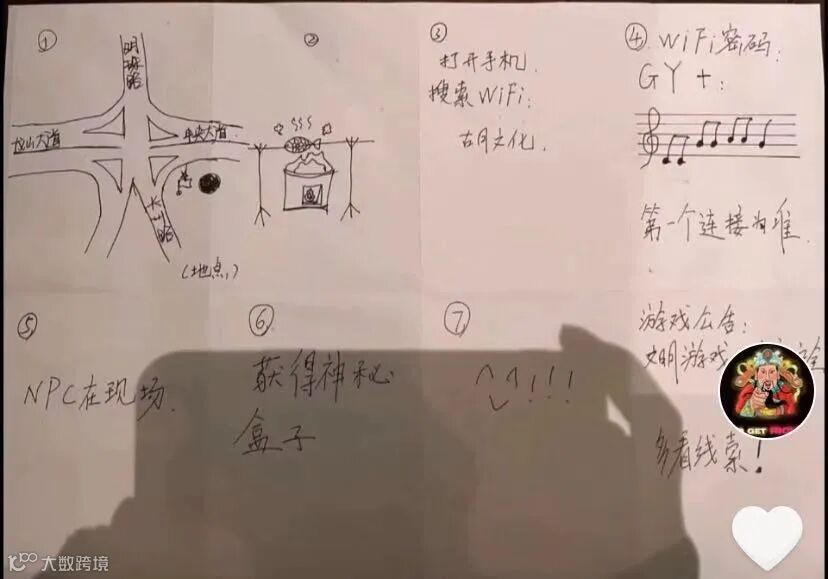 ①
明珠路
龙山大道
中央大道
(地点1)
②
③
打开手机.
搜索WiFi:
古月文化.
④ WiFi密码:
GY+:
第一个连接为准.
游戏公告:
文明游戏
多看线索!
⑤
NPC在现场.
⑥
获得神秘
盒子
⑦
!!!
GET RICH
大数跨境